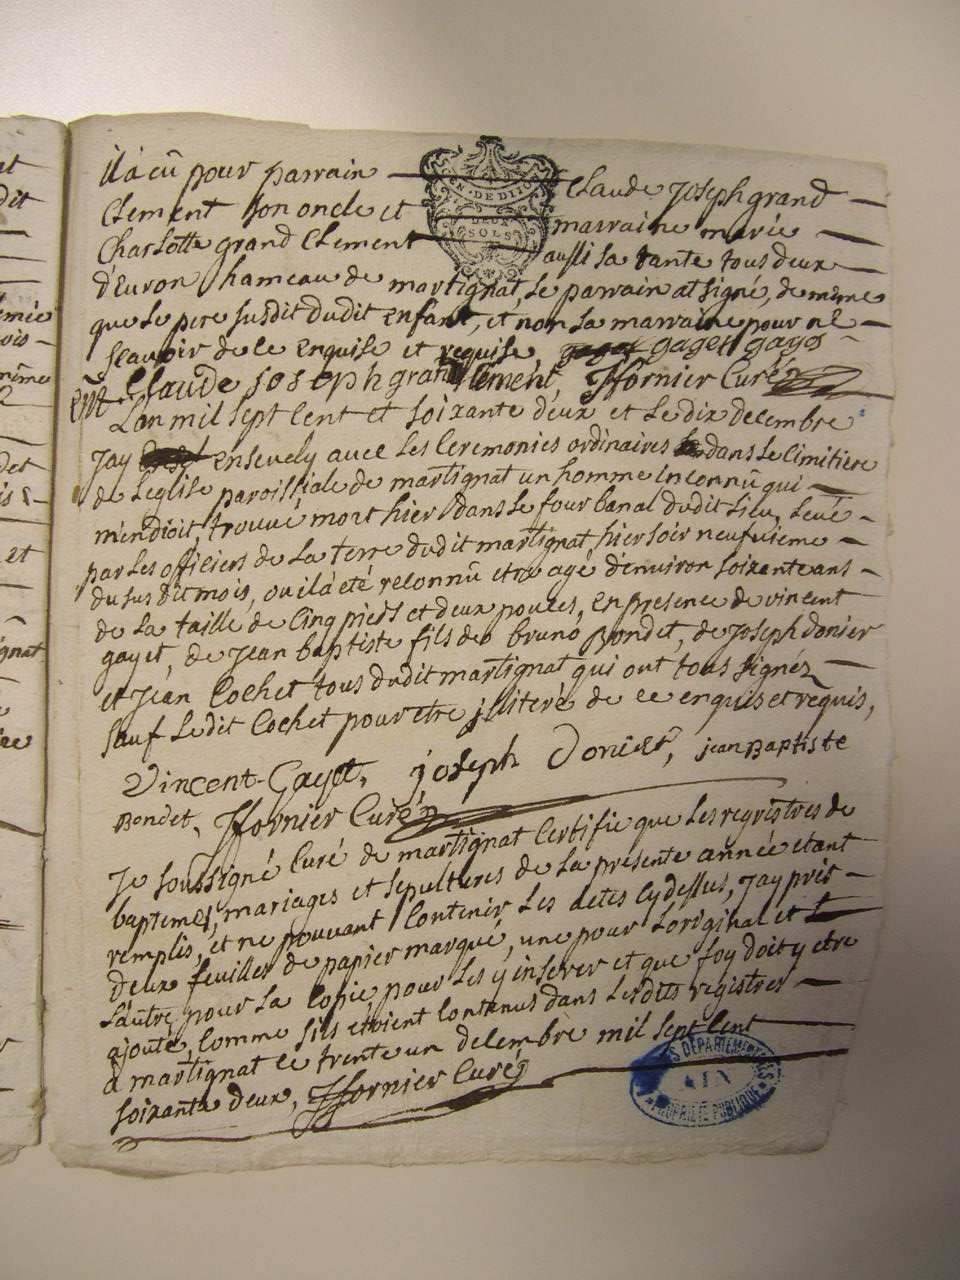 il a eû pour parrain Claude Joseph grand
Clement son oncle et marraine marie
Charlotte grand Clement aussi sa tante tous deux
d'Evron hameau de martignat, le parrain at signé, de même
que le pere susdit dudit enfant, et non la marraine pour ne
scavoir de ce enquise et requise, gaget gayet
Claude joseph grand clement, JFornier Curé
GEN. DE DIJON
DEUX SOLS
L'an mil sept cent et soixante deux et le dix decembre
Jay ensevely avec les Ceremonies ordinaires dans le Cimitiere
de Leglise paroissiale de martignat un homme inconnû qui
mendioit, trouvé mort hier dans le four banal dudit lieu, Levé
par les officiers de La terre dudit martignat, hier soir neufvieme
du susdit mois, ou il a été reconnû etre agé d'environ soixante ans
de La taille de Cinq pieds et deux pouces, en presence de vincent
gayet, de Jean baptiste fils de bruno Bondet, de Joseph donier
et Jean Cochet tous dudit martignat qui ont tous signéz
sauf Le dit Cochet pour etre jlliteré de ce enquis et requis,
Vincent Gayet, joseph Donier, jean Baptiste
Bondet, JFornier Curé
Je soussigné Curé de martignat Certifie que Les registres de
baptemes, mariages et sepultures de La presente année etant
remplis, et ne pouvant Contenir Les actes cy dessus, Jay pris
deux feuilles de papier marqué, une pour Loriginal et
Lautre pour La Copie, pour Les y inserer et que foy doit y etre
ajouté, Comme sils etoient Contenus dans Lesdits registres
a martignat ce trente un decembre mil sept cent
soixante deux, JFornier Curé
ARCHIVES DÉPARTEMENTALES
AIN
PROPRIÉTÉ PUBLIQUE